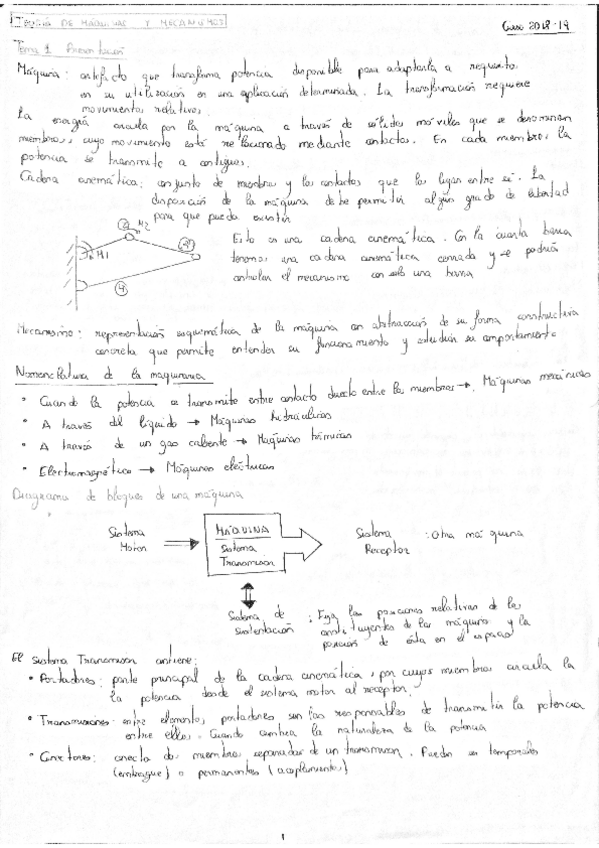 TEORÍA DE MÁQUINAS Y MECANISMOS Curso 2018-19
Tema 1 Presentación
Máquina: artefacto que transforma potencia disponible para adaptarla a requisitos
en su utilización en una aplicación determinada. La transformación requiere
movimientos relativos.
La energía circula por la máquina a través de sólidos móviles que se denominan
miembros, cuyo movimiento está relacionado mediante contactos. En cada miembro, la
potencia se transmite a contiguos.
Cadena cinemática: conjunto de miembros y los contactos que los ligan entre sí. La
disposición de la máquina debe permitir algún grado de libertad
para que pueda existir
M2
M1
4
Esto es una cadena cinemática. Con la cuarta barra
tenemos una cadena cinemática cerrada y se podrá
controlar el mecanismo con solo una barra
Mecanismo: representación esquemática de la máquina en abstracción de su forma constructiva
concreta que permite entender su funcionamiento y estudiar su comportamiento
Nomenclatura de la maquinaria
• Cuando la potencia se transmite entre contacto directo entre los miembros → Máquinas mecánicas
• A través del líquido → Máquinas hidráulicas
• A través de un gas caliente → Máquinas térmicas
• Electromagnético → Máquinas eléctricas
Diagrama de bloques de una máquina
Sistema Motor
MÁQUINA
Sistema
Transmisión
Sistema Receptor : Otra máquina
Sistema de Sustentación : Fija las posiciones relativas de los
constituyentes de las máquinas y la
posición de ésta en el espacio
El Sistema Transmisión contiene:
• Portadores: parte principal de la cadena cinemática, por cuyos miembros circula la
la potencia desde el sistema motor al receptor.
• Transmisiones: entre elementos portadores son las responsables de transmitir la potencia
entre ellos. Cuando cambia la naturaleza de la potencia
• Conectores: conecta dos miembros separados de un transmisión. Pueden ser temporales
(embrague) o permanentes (acoplamiento)
1